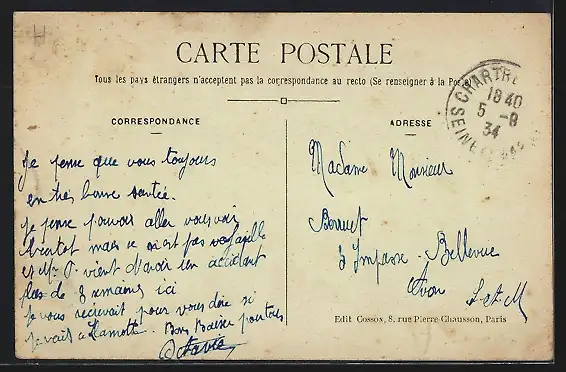 H
CARTE POSTALE
Tous les pays étrangers n'acceptent pas la correspondance au recto (Se renseigner à la Poste)
CORRESPONDANCE
ADRESSE
CHARTRE
1840
5 -9
34
SEINE
Je pense que vous toujours
en très bonne santée.
Je pense pouvoir aller vous voir
bientot mais ce n'est pas
et Mr P. vient d'avoir un accident
plus de 3 semaines ici
Je vous pour vous dire si
je vais a Lamotte. Bons Baisers pour tous
Octavie
Madame Monsieur
3 Impasse Bellevue
Avon S-et-M
Edit Cosson, 8, rue Pierre-Chausson, Paris